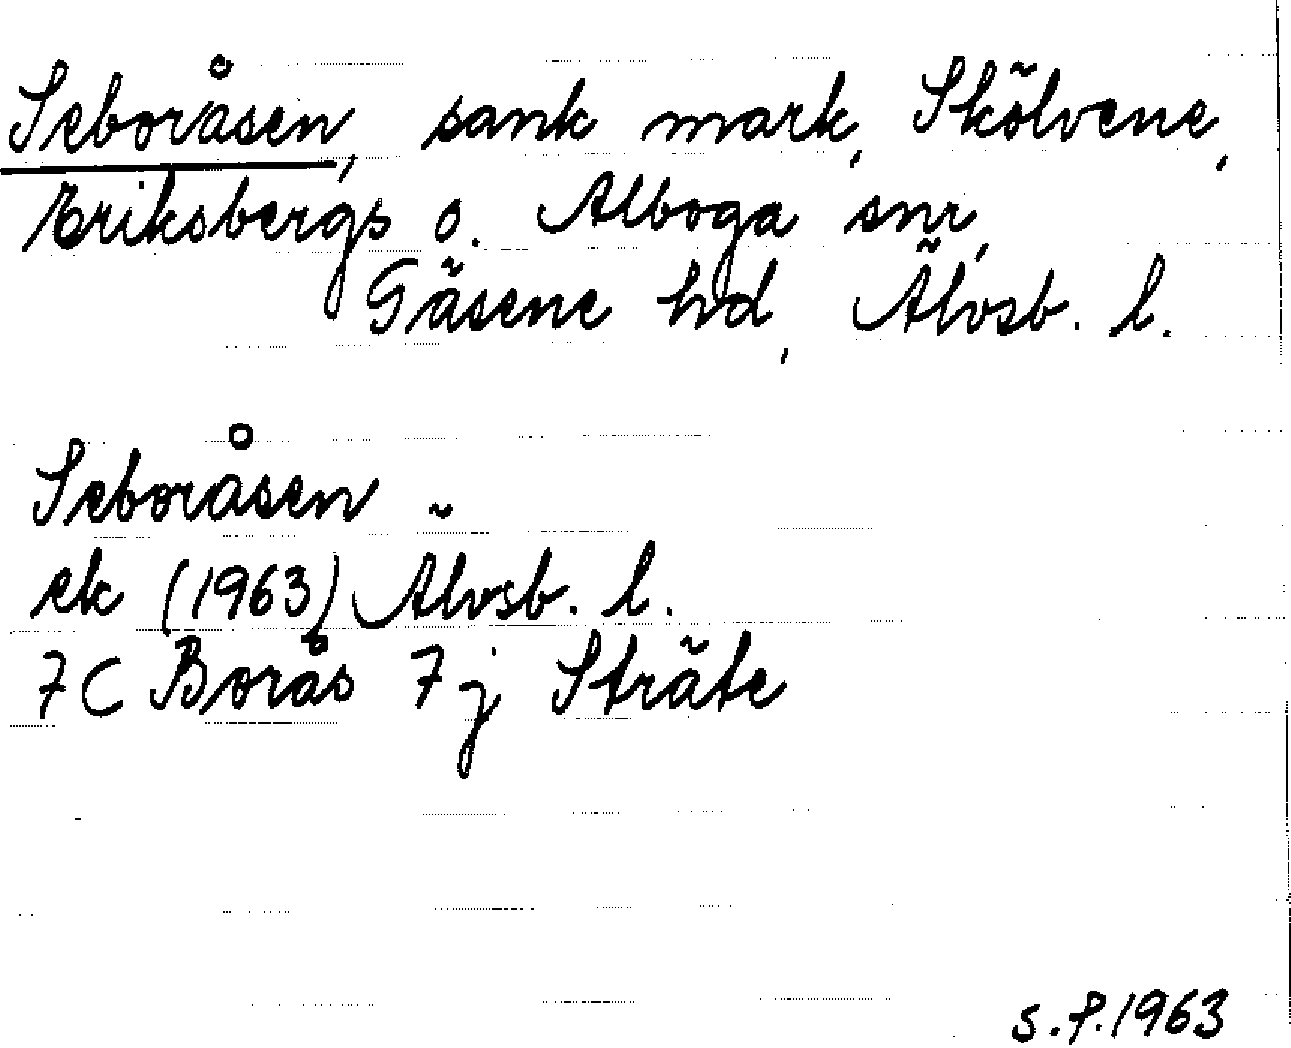 Seboråsen, sank mark, Skölvene,
Eriksbergs o. Alboga snr,
Gäsene hd, Älvsb. l.
Seboråsen
ek (1963) Älvsb. l.
7C Borås 7j Sträte
S.P.1963